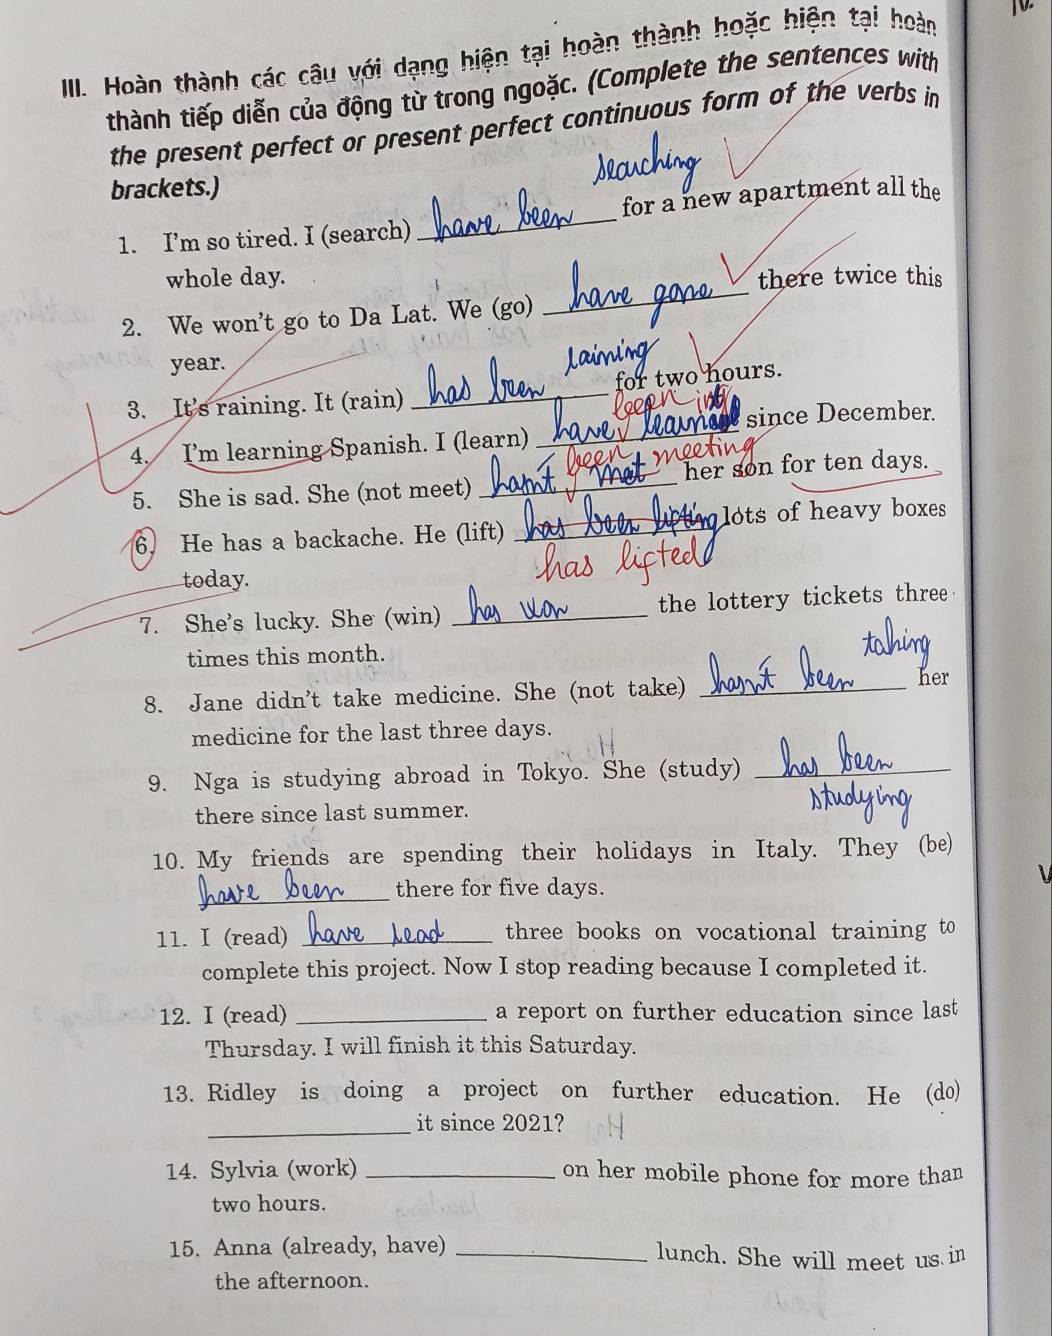 IV.
III. Hoàn thành các câu với dạng hiện tại hoàn thành hoặc hiện tại hoàn
thành tiếp diễn của động từ trong ngoặc. (Complete the sentences with
the present perfect or present perfect continuous form of the verbs in
brackets.)
searching
1. I'm so tired. I (search) have been for a new apartment all the
whole day.
2. We won't go to Da Lat. We (go) have gone there twice this
year.
raining
3. It's raining. It (rain) has been for two hours.
been ing
4. I'm learning Spanish. I (learn) have learn since December.
been meeting
5. She is sad. She (not meet) hasn't met her son for ten days.
6. He has a backache. He (lift) has been lifting lots of heavy boxes
has lifted
today.
7. She's lucky. She (win) has won the lottery tickets three
times this month.
taking
8. Jane didn't take medicine. She (not take) hasn't been her
medicine for the last three days.
9. Nga is studying abroad in Tokyo. She (study) has been
studying
there since last summer.
10. My friends are spending their holidays in Italy. They (be)
have been there for five days.
11. I (read) have read three books on vocational training to
complete this project. Now I stop reading because I completed it.
12. I (read) ___ a report on further education since last
Thursday. I will finish it this Saturday.
13. Ridley is doing a project on further education. He (do)
___ it since 2021?
14. Sylvia (work) ___ on her mobile phone for more than
two hours.
15. Anna (already, have) ___ lunch. She will meet us in
the afternoon.